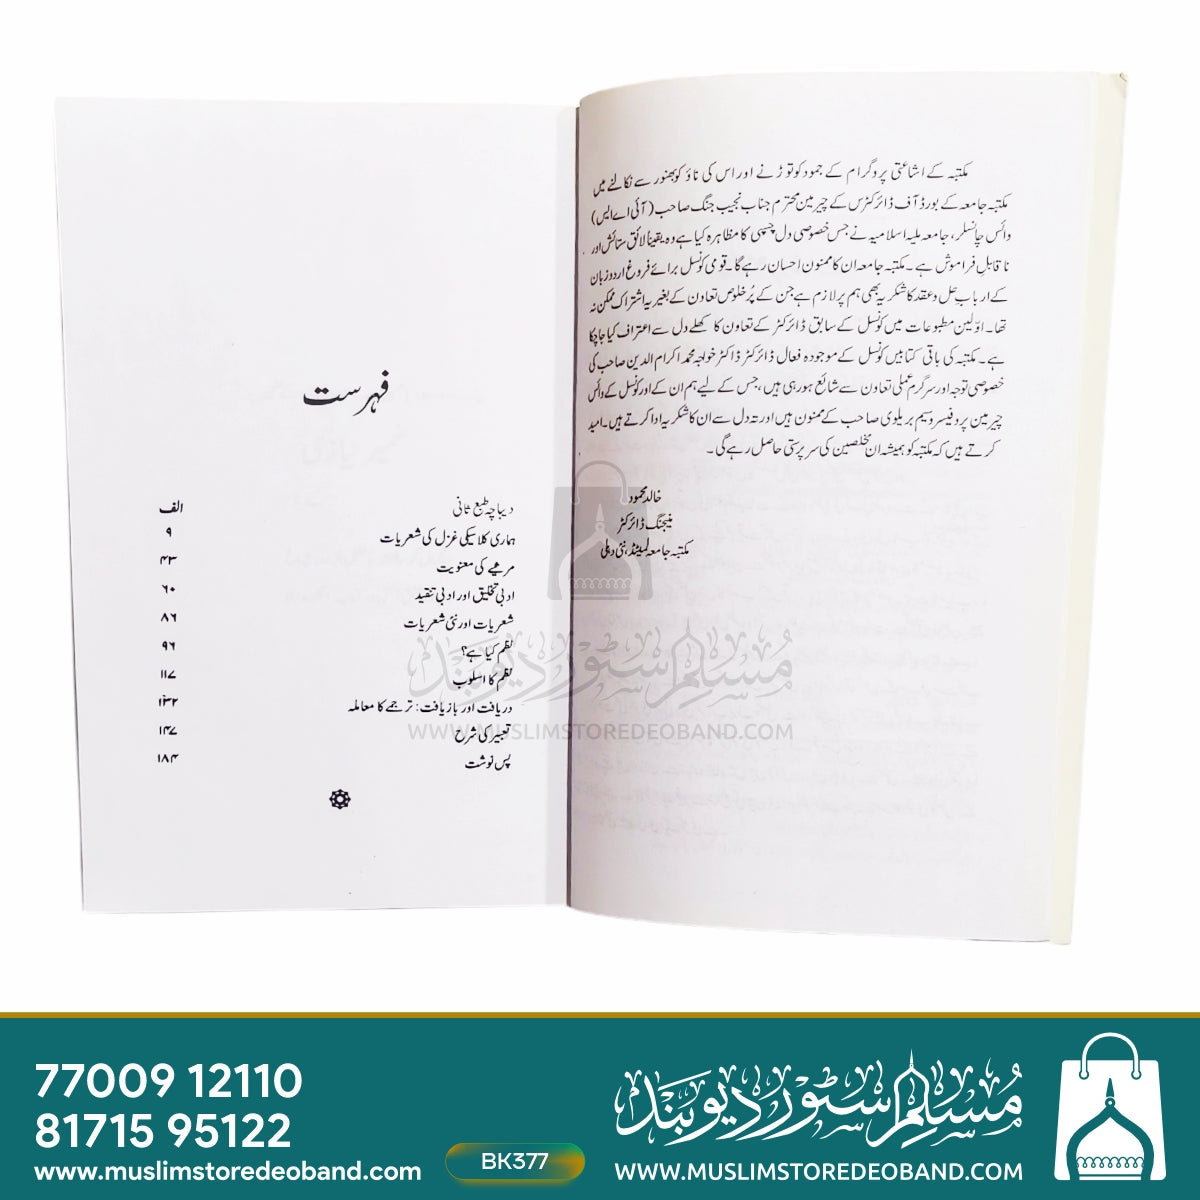 مکتبہ کے اشاعتی پروگرام کے جمود کو توڑنے اور اس کی ناؤ کو بھنور سے نکالنے میں
مکتبہ جامعہ کے بورڈ آف ڈائرکٹرس کے چیرمین محترم جناب نجیب جنگ صاحب (آئی اے ایس)
وائس چانسلر، جامعہ ملیہ اسلامیہ نے جس خصوصی دل چسپی کا مظاہرہ کیا ہے وہ یقیناً لائق ستائش اور
ناقابلِ فراموش ہے۔ مکتبہ جامعہ ان کا ممنون احسان رہے گا۔ قومی کونسل برائے فروغ اردو زبان
کے اربابِ حل و عقد کا شکریہ بھی ہم پر لازم ہے جن کے پُرخلوص تعاون کے بغیر یہ اشتراک ممکن نہ
تھا۔ اوّلین مطبوعات میں کونسل کے سابق ڈائرکٹر کے تعاون کا کھلے دل سے اعتراف کیا جاچکا
ہے۔ مکتبہ کی باقی کتابیں کونسل کے موجودہ فعال ڈائرکٹر ڈاکٹر خواجہ محمد اکرام الدین صاحب کی
خصوصی توجہ اور سرگرم عملی تعاون سے شائع ہورہی ہیں، جس کے لیے ہم ان کے اور کونسل کے وائس
چیرمین پروفیسر وسیم بریلوی صاحب کے ممنون ہیں اور تہ دل سے ان کا شکریہ ادا کرتے ہیں۔ امید
کرتے ہیں کہ مکتبہ کو ہمیشہ ان مخلصین کی سرپرستی حاصل رہے گی۔
خالد محمود
منیجنگ ڈائرکٹر
مکتبہ جامعہ لمیٹڈ، نئی دہلی
فہرست
دیباچہ طبع ثانی الف
ہماری کلاسیکی غزل کی شعریات ۹
مرثیے کی معنویت ۴۳
ادبی تخلیق اور ادبی تنقید ۶۰
شعریات اور نئی شعریات ۸۶
نظم کیا ہے؟ ۹۶
نظم کا اسلوب ۱۱۷
دریافت اور بازیافت: ترجمے کا معاملہ ۱۳۲
تعبیر کی شرح ۱۴۷
پس نوشت ۱۸۴
مسلم سٹور دیوبند
WWW.MUSLIMSTOREDEOBAND.COM
77009 12110
81715 95122
www.muslimstoredeoband.com
BK377
مسلم سٹور دیوبند
WWW.MUSLIMSTOREDEOBAND.COM